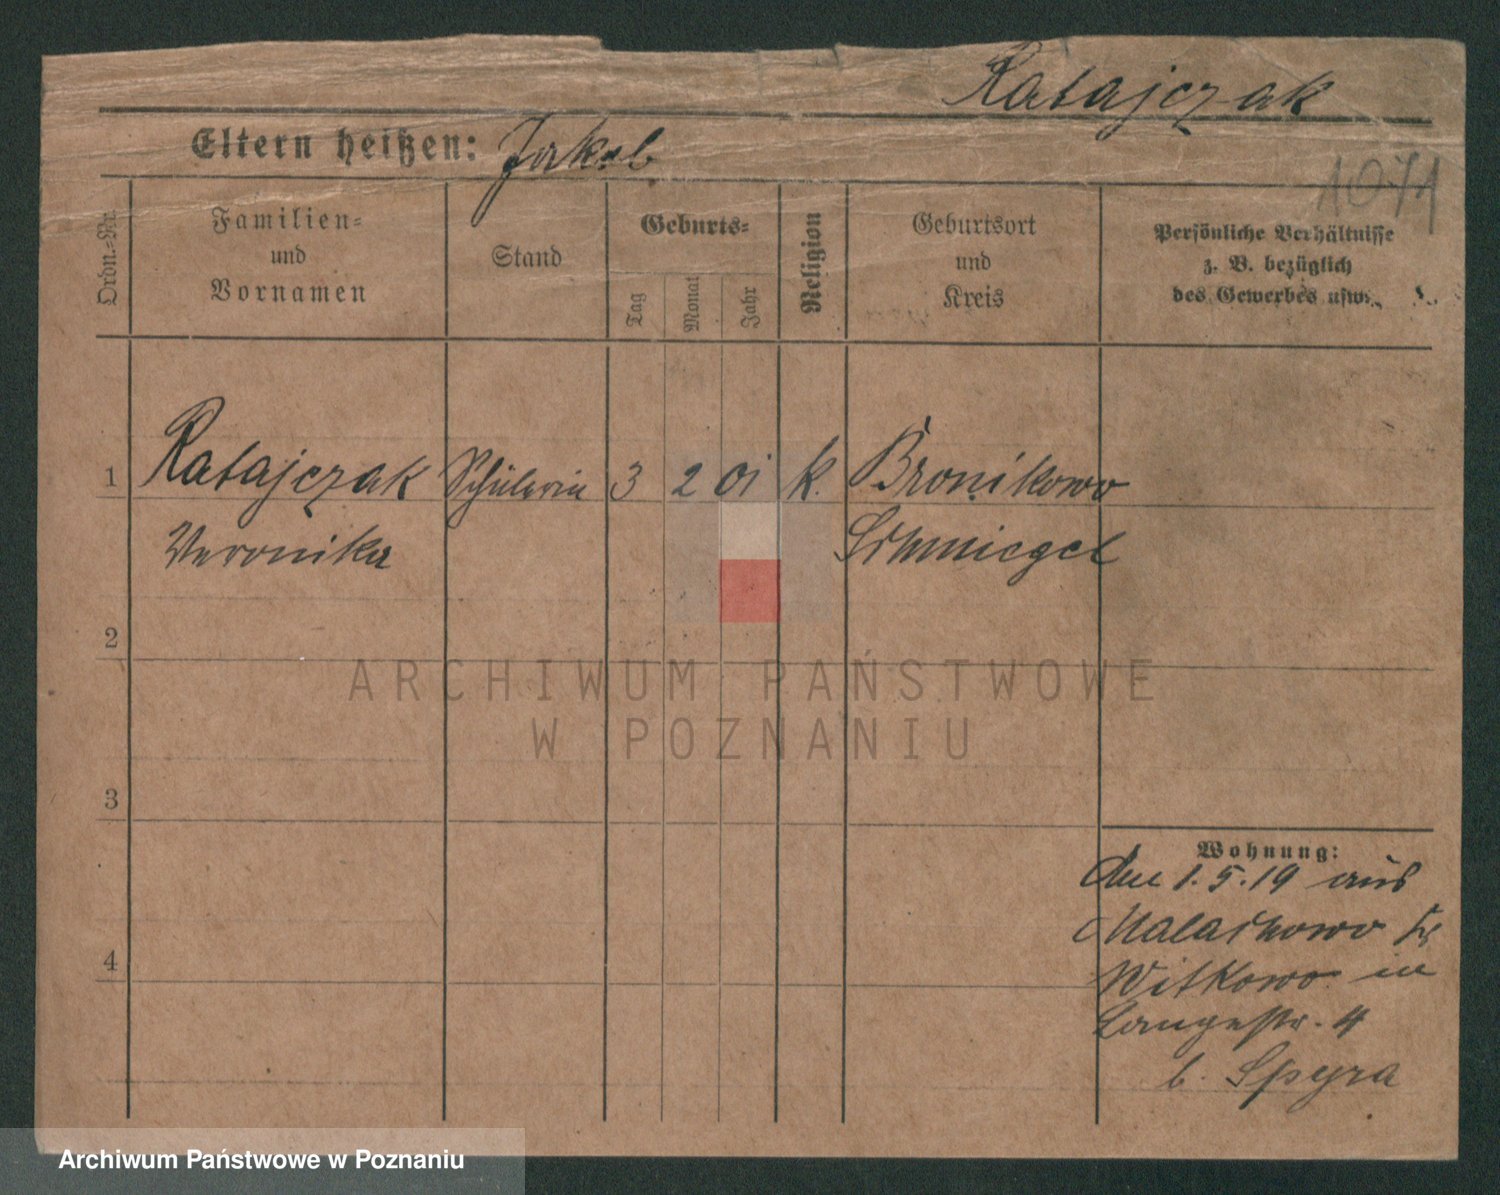 Ratajczak
Eltern heißen: Jakob
1071
Ordn.-Nr.
Familien-
und
Vornamen
Stand
Geburts-
Tag
Monat
Jahr
Religion
Geburtsort
und
Kreis
Persönliche Verhältnisse
z. B. bezüglich
des Gewerbes usw.
1 Ratajczak Schülerin 3 2 01 k. Bronikowo
Veronika Schmiegel
2
ARCHIWUM PAŃSTWOWE
W POZNANIU
3
Wohnung:
den 1.5.19 aus
Malachowo Kr
4
Witkowo in
Langestr. 4
b. Spyra
Archiwum Państwowe w Poznaniu